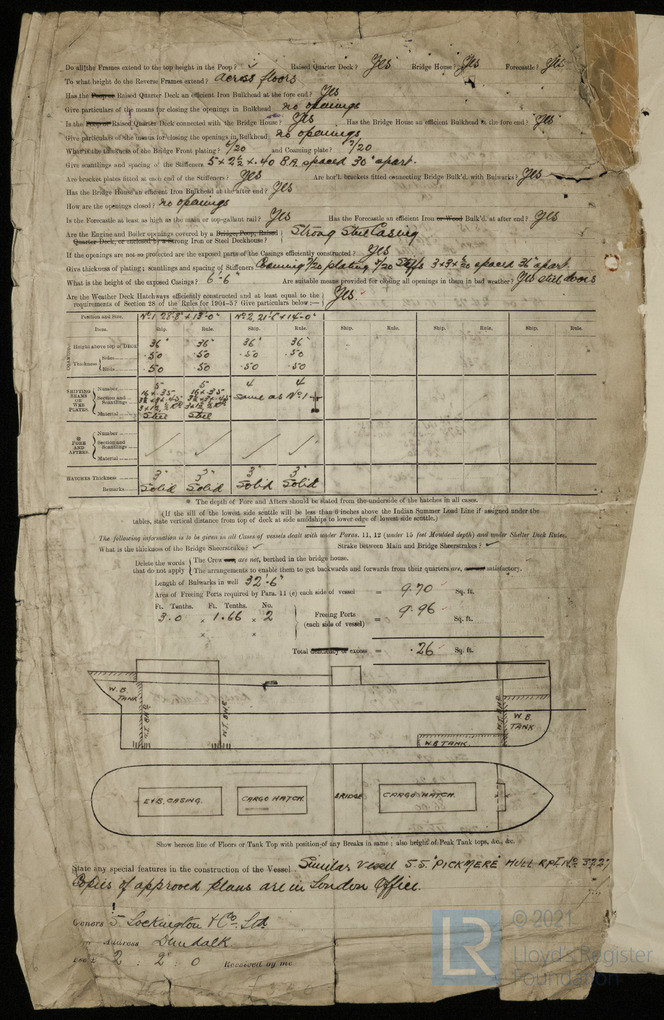 Do all the Frames extend to the top height in the Poop? Raised Quarter Deck? Yes Bridge House? Yes Forecastle? Yes
To what height do the Reverse Frames extend? across floors
Has the Poop or Raised Quarter Deck an efficient Iron Bulkhead at the fore end? Yes
Give particulars of the means for closing the openings in Bulkhead no openings
Is the Poop or Raised Quarter Deck connected with the Bridge House? Yes Has the Bridge House an efficient Bulkhead at the fore end? Yes
Give particulars of the means for closing the openings in Bulkhead no openings
What is the thickness of the Bridge Front plating? 6/20 and Coaming plate? 7/20
Give scantlings and spacing of the Stiffeners 5 x 2½ x .40 B.A. spaced 30" apart.
Are bracket plates fitted at each end of the Stiffeners? Yes Are hor'l. brackets fitted connecting Bridge Bulk'd. with Bulwarks? Yes
Has the Bridge House an efficient Iron Bulkhead at the after end? Yes
How are the openings closed? no openings
Is the Forecastle at least as high as the main or top-gallant rail? Yes Has the Forecastle an efficient Iron or Wood Bulk'd. at after end? Yes
Are the Engine and Boiler openings covered by a Bridge, Poop, Raised
Quarter Deck, or enclosed by a strong Iron or Steel Deckhouse? Strong Steel Casing
If the openings are not so protected are the exposed parts of the Casings efficiently constructed? Yes
Give thickness of plating; scantlings and spacing of Stiffeners Coaming 7/20 plating 7/20 Stiffs 3 x 3 x 6/20 spaced 36" apart.
What is the height of the exposed Casings? 6'-6" Are suitable means provided for closing all openings in them in bad weather? Yes steel doors
Are the Weather Deck Hatchways efficiently constructed and at least equal to the
requirements of Section 28 of the Rules for 1904-5? Give particulars below:— Yes
Position and Size. No 1, 28'-8" x 13'-0" No 2, 21'-6" x 14'-0"
Item. Ship. Rule. Ship. Rule. Ship. Rule. Ship. Rule.
Height above top of Deck 36" 36" 36" 36"
Thickness Sides .50 .50 .50 .50
Ends .50 .50 .50 .50
SHIFTING BEAMS OR WEB PLATES. Number 5 5 4 4
Section and Scantlings Same as No 1
Material Steel Steel
FORE AND AFTERS. Number
Section and Scantlings
Material
HATCHES Thickness 3" 3" 3" 3"
Remarks Solid Solid Solid Solid
* The depth of Fore and Afters should be stated from the underside of the hatches in all cases.
(If the sill of the lowest side scuttle will be less than 6 inches above the Indian Summer Load Line if assigned under the
tables, state vertical distance from top of deck at side amidships to lower edge of lowest side scuttle.)
The following information is to be given in all Cases of vessels dealt with under Paras. 11, 12 (under 15 feet Moulded depth) and under Shelter Deck Rules.
What is the thickness of the Bridge Sheerstrake? Strake between Main and Bridge Sheerstrakes?
Delete the words that do not apply The Crew are not, berthed in the bridge house.
The arrangements to enable them to get backwards and forwards from their quarters are, satisfactory.
Length of Bulwarks in well 32'-6"
Area of Freeing Ports required by Para. 11 (e) each side of vessel = 9.70 Sq. ft.
Ft. Tenths. Ft. Tenths. No.
3.0 x 1.66 x 2 Freeing Ports (each side of vessel) = 9.96 Sq. ft.
x x
Total deficiency or excess = .26 Sq. ft.
W.B. TANK
W.T. BHD
W.T. BHD
W.B TANK
W.T. BHD
W.B. TANK
E & B. CASING.
CARGO HATCH.
BRIDGE
CARGO HATCH.
Show hereon line of Floors or Tank Top with position of any Breaks in same; also height of Peak Tank tops, &c., &c.
State any special features in the construction of the Vessel Similar vessel S.S. "PICKMERE" HULL RPT. No
Copies of approved plans are in London Office.
Owners S. Lockington & Co. Ltd
Address Dundalk
2 : 2 : 0 Received by me
LR
© 2021
Lloyd's Register
Foundation